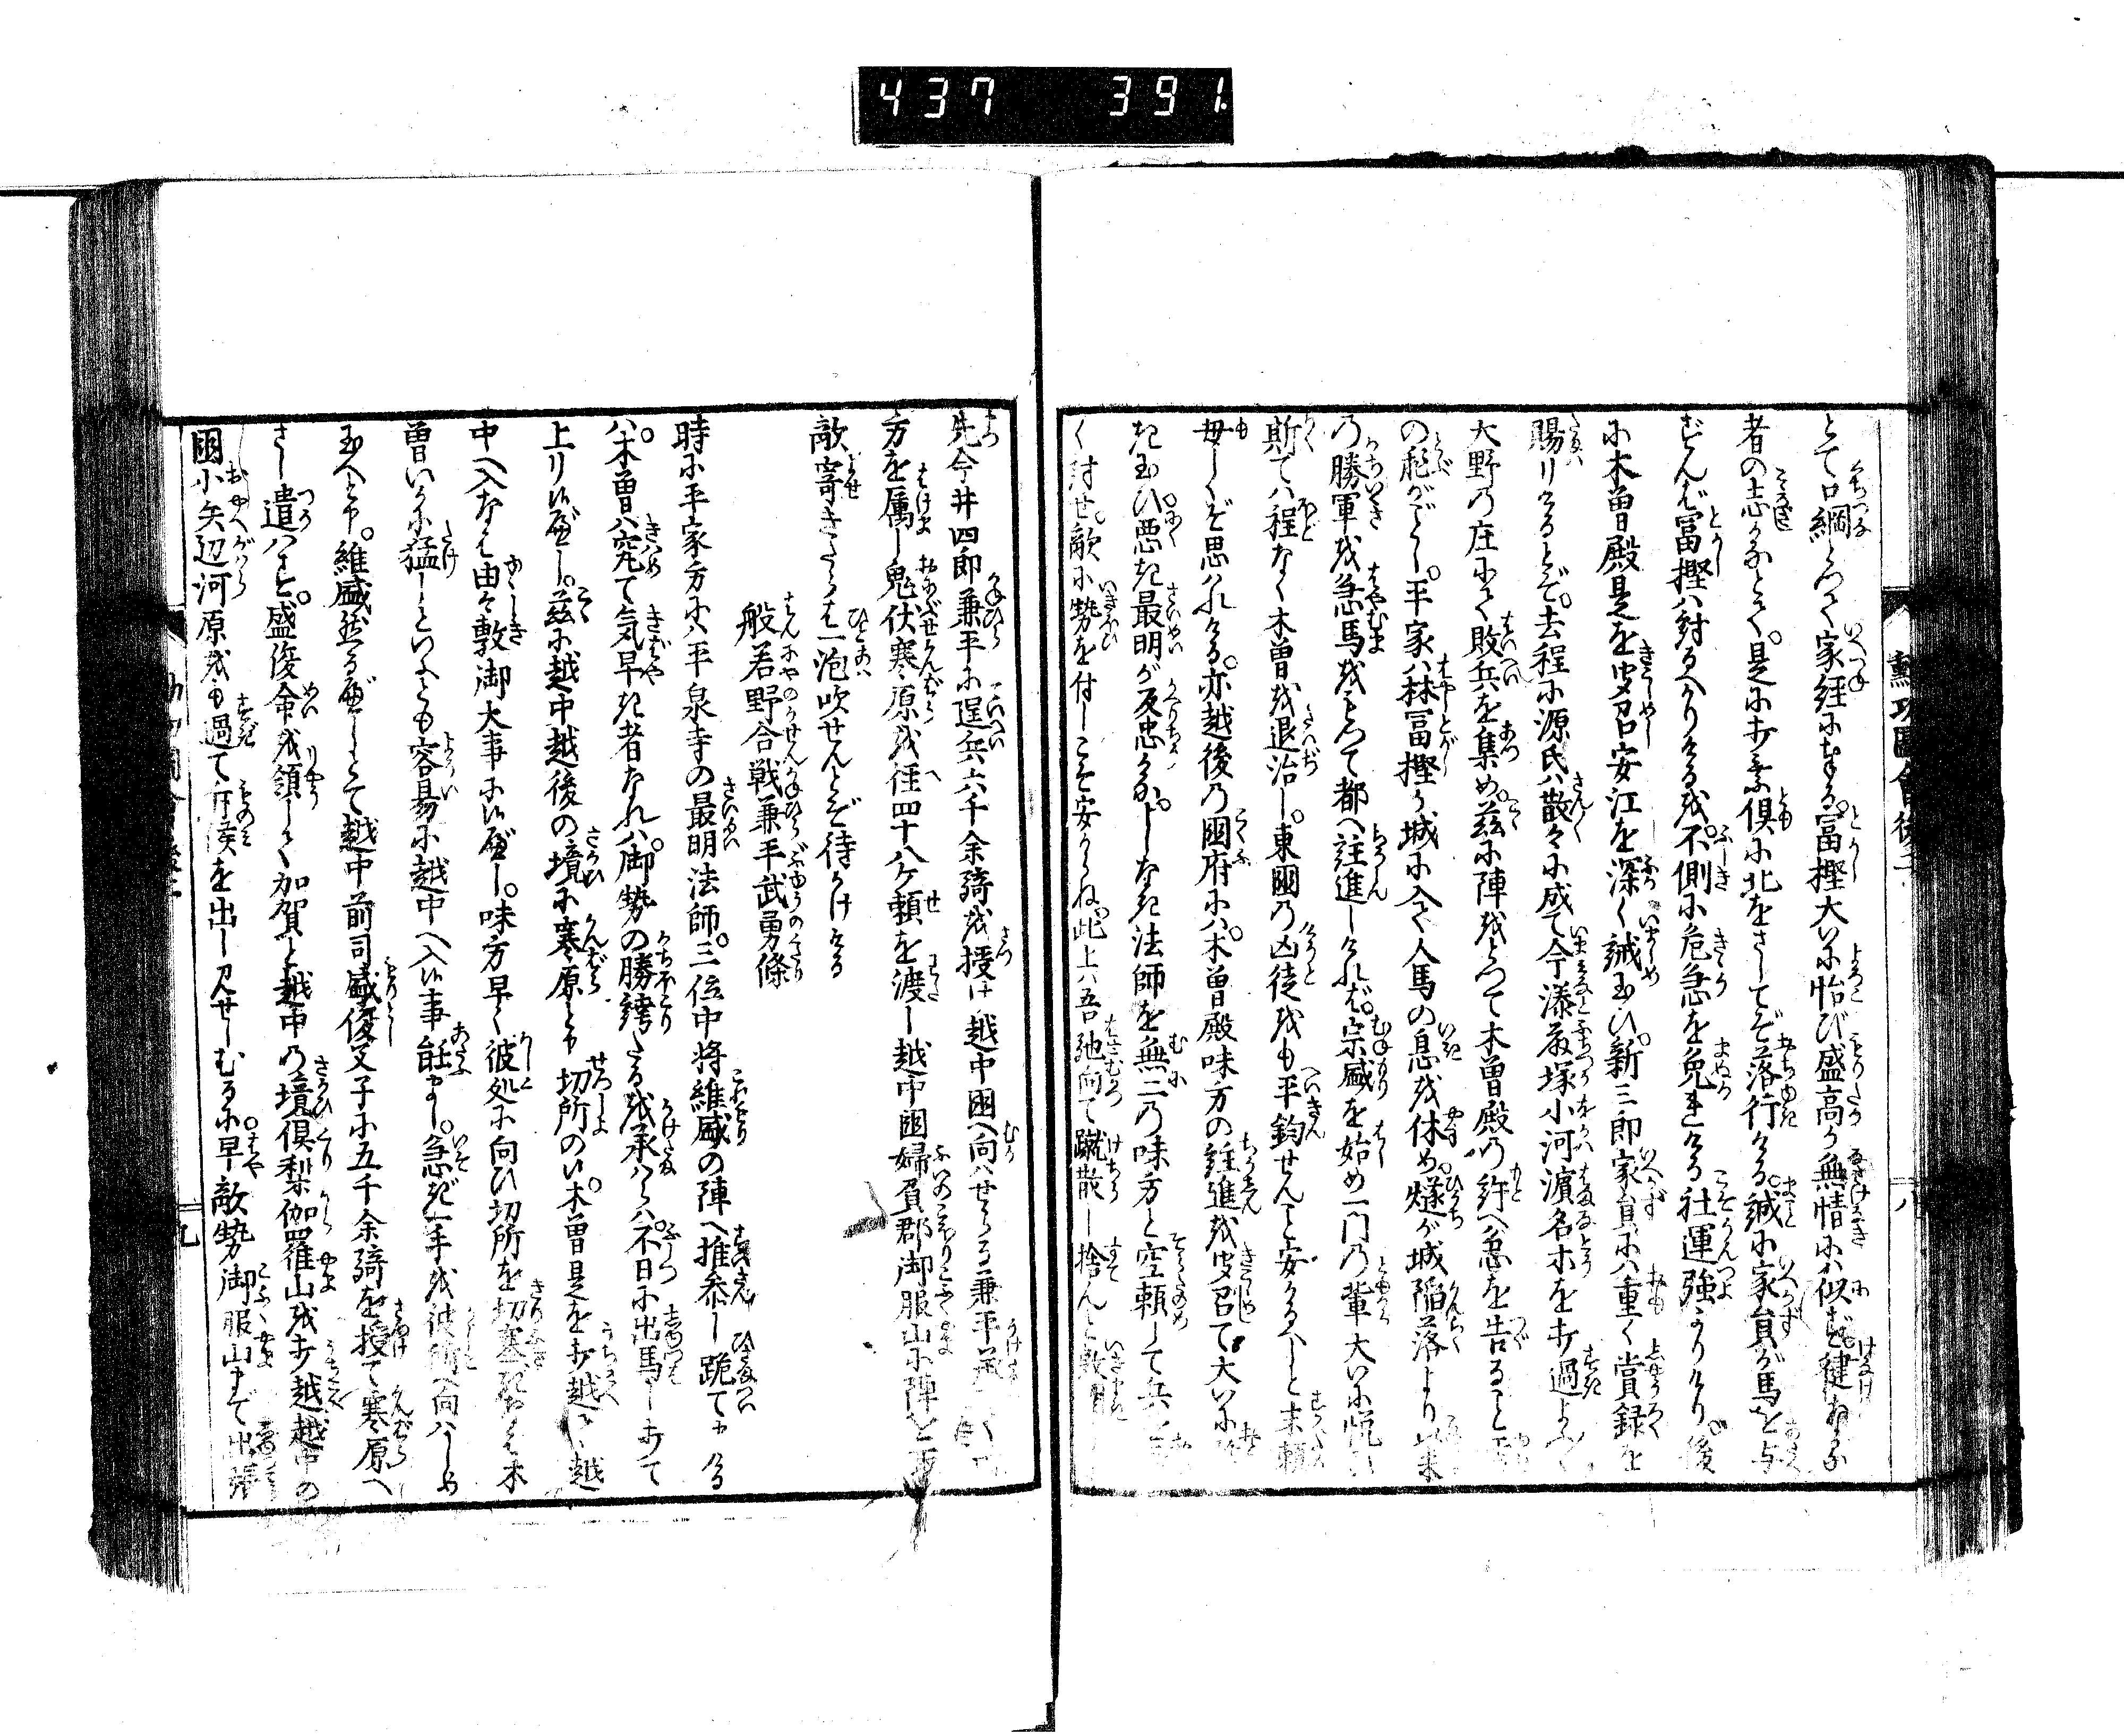 437 391
勲功図会後二
八
とて口綱とつて家経に奉る。富樫大いに怡び盛高が無情に似ず健
者の志かなとて。是に打乗倶に北をさしてぞ落行ける。誠に家員が馬を与
ずんば富樫ハ討るべかりけるを。不側に危急を免ま社運強かりけり。後
に木曽殿是を聞召安江を深く誡玉ひ。新三郎家員にハ重く賞録を
賜りけるとぞ。去程に源氏ハ散々に成て今湊藤塚小河濱名木を打過
大野の庄にて敗兵を集め。茲に陣をとつて木曽殿の許へ急を告ること
のごとし。平家ハ林冨樫が城に入て人馬の息を休め。燧が城陥落より以来
の勝軍を急馬をもつて都へ註進しけれバ。宗盛を始め一門の輩大いに悦
斯てハ程なく木曽を退治し。東国の凶徒をも平均せんこと安かるべしと末頼
母しくぞ思ハれける。亦越後の国府にハ。木曽殿味方の註進を聞召て。大いに
き玉ひ。悪き最明が反忠かな。しなき法師を無二の味方と空頼して兵
く討せ。敵に勢を付しこそ安からね。此上ハ吾馳向て蹴散し捨んと
先今井四郎兼平に逞兵六千余騎を授け越中国へ向ハせらる兼平
方を属し鬼伏寒原を径四十八ケ頼を渡し越中国婦負郡御服山に陣を
敵寄きたらバ一泡吹せんとぞ待かけける
般若野合戦兼平武勇條
時に平家方にハ平泉寺の最明法師。三位中将維盛の陣へ推参し跪て申ける
ハ。木曽ハ究て気早き者なれハ。御勢の勝誇たるを承ハらハ。不日に出馬し打て
上り候べし。茲に越中越後の境に寒原と申切所の候。木曽是を打越へ越
中へ入なバ由々敷御大事に候べし。味方早く彼処に向ひ切所を切塞ぎなバ木
曽いかに猛しといふとも容易に越中へ入候事能まじ。急ぎ一手を彼所へ向ハしめ
玉へと申。維盛然るべしとて越中前司盛俊父子に五千余騎を授て寒原へ
さし遣ハす。盛俊命を領して加賀と越中の境倶梨伽羅山を打越越中の
国小矢辺河原をも過て斥候を出し見せしむるに。早敵勢御服山まで出張
九